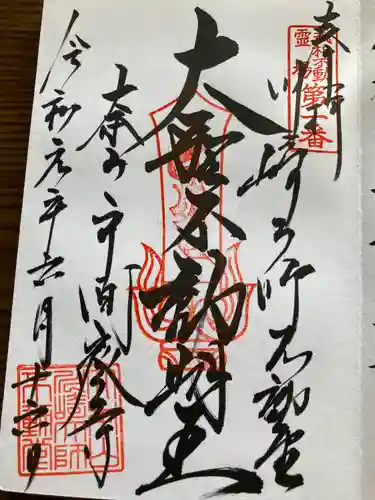 奉拝
川崎大師不動堂
大聖不動明王
大本山
平間寺
令和元年六月十六日
第一番